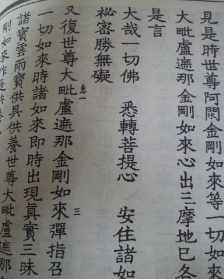 見是時世尊阿閦金剛如來等一切如
大毗盧遮那金剛如來心出三摩地已各
是言
大哉一切佛　悉轉菩提心　安住諸如
祕密勝無礙
又復世尊大毗盧遮那金剛如來彈指召
卷一
三
一切如來時諸如來即時出現真實三昧
諸寶雲雨寶供具供養世尊大毗盧遮那
剛如來作